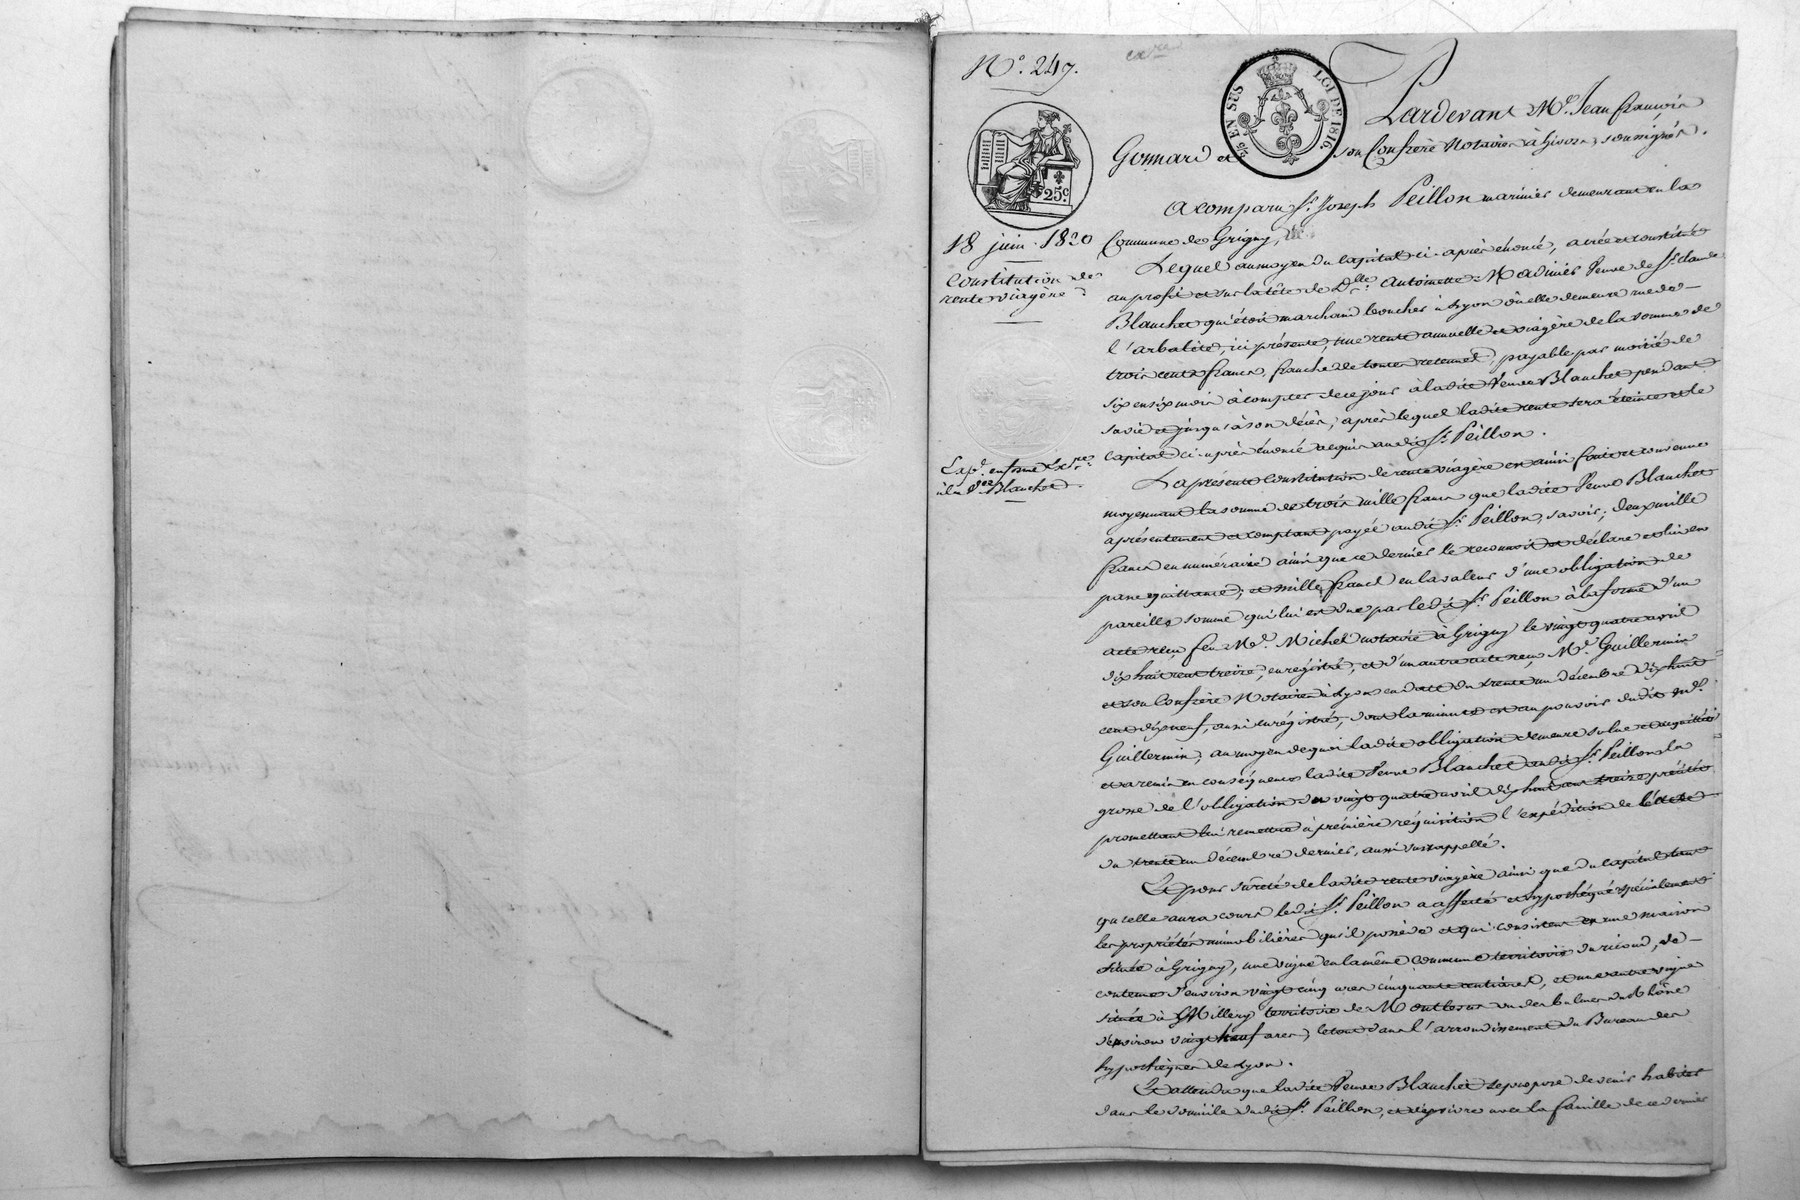 N.° 247.
5/e EN SUS LOI DE 1816
25c.
18 juin 1820
Constitution de
rente viagère
Exp.on en forme Ex.re
à la V.ve Blanchet
Pardevant M.e Jean françois
Gonnard et son Confrère Notaires à Givors soussignés.
A comparu S.r Joseph Peillon marinier demeurant en la
Commune de Grigny,
Lequel au moyen du capital ci-après énoncé, a créé et constitué
au profit et sur la tête de D.lle Antoinette Madinier Veuve de S.r claude
Blanchet qui étoit marchand boucher à Lyon où elle demeure rue de
l'arbalète, ici présente, une rente annuelle et viagère de la somme de
trois cents francs, franche de toutes retenues, payable par moitié de
six en six mois à compter de ce jour à ladite Veuve Blanchet pendant
sa vie et jusqu'à son décès, après lequel ladite rente sera éteinte et le
capital ci-après énoncé acquis audit S.r Peillon.
La présente Constitution de rente viagère est ainsi faite et consentie
moyennant la somme de trois mille francs que ladite Veuve Blanchet
a présentement et comptant payée audit S.r Peillon, savoir; deux mille
francs en numéraire ainsi que ce dernier le reconnoit et déclare et lui en
passe quittance; et mille francs en la valeur d'une obligation de
pareille somme qui lui est due par ledit S.r Peillon à la forme d'un
acte reçu feu M.e Michel notaire à Grigny le vingt quatre avril
dix huit cent treize, enregistré, et d'un autre acte reçu M.e Guillermin
et son Confrère Notaires à Lyon en date du trente un décembre dix huit
cent dix neuf, aussi enregistré, dont la minute est au pouvoir dudit M.e
Guillermin, au moyen de quoi ladite obligation demeure solue et acquittée
et a remis en conséquence ladite Veuve Blanchet audit S.r Peillon la
grosse de l'obligation du vingt quatre avril dix huit cent treize précitée
promettant lui remettre à première réquisition l'expédition de l'acte
du trente un décembre dernier, aussi susrappellé.
Et pour sûreté de ladite rente viagère ainsi que du capital tant
qu'elle aura cours ledit S.r Peillon a affecté et hypothéqué spécialement
les propriétés immobilières qu'il possède et qui consistent en une maison
située à Grigny, une vigne en la même commune territoire du de
contenue d'environ vingt cinq ares cinquante centiares, et une autre vigne
située à Millery territoire de ou des balmes du Rhône
d'environ vingt neuf ares, le tout dans l'arrondissement du Bureau des
hypothèques de Lyon.
Et attendu que ladite Veuve Blanchet se propose de venir habiter
dans le domicile dudit S.r Peillon, et d'y vivre avec la famille de ce dernier